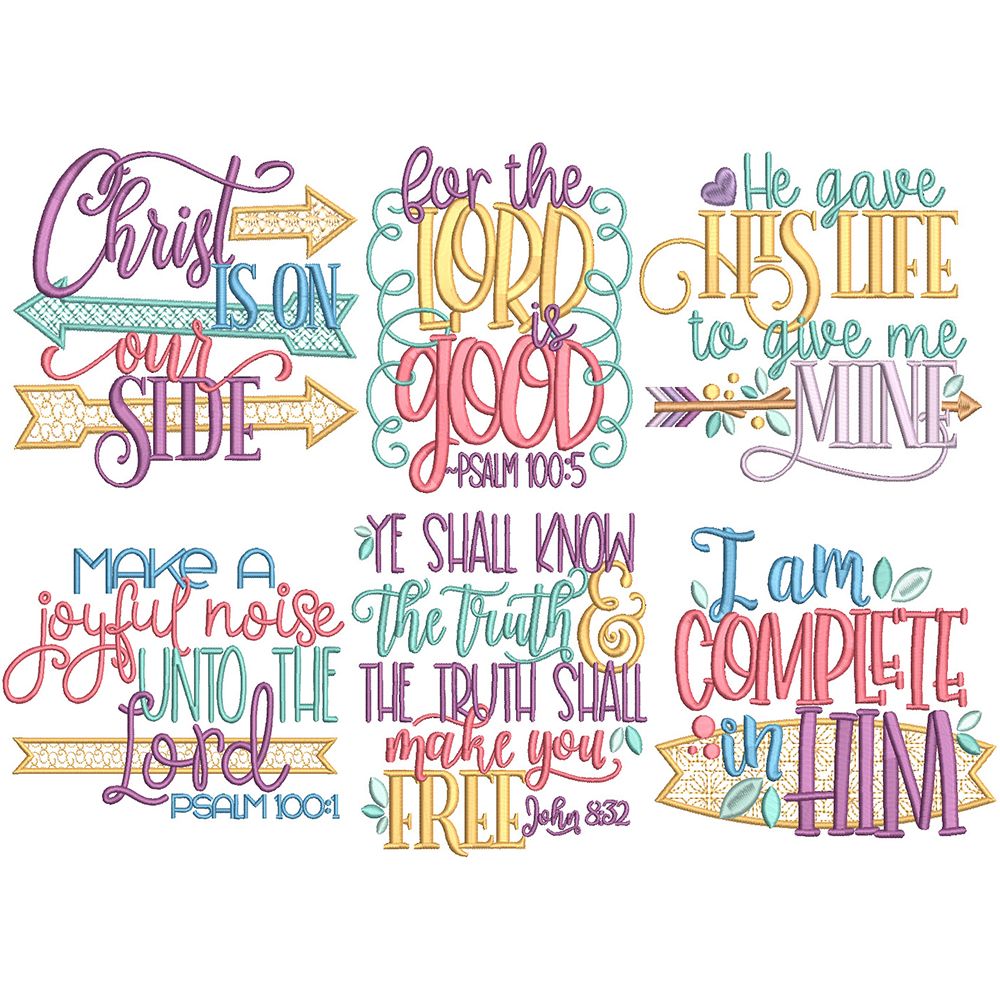 Christ
IS ON
our
SIDE
for the
LORD
is
gOOD
~PSALM 100:5
He gave
HIS LIFE
to give me
MINE
MAKE A
joyful noise
UNTO THE
Lord
PSALM 100:1
YE SHALL KNOW
the truth &
THE TRUTH SHALL
make you
FREE John 8:32
I am
COMPLETE
in HIM